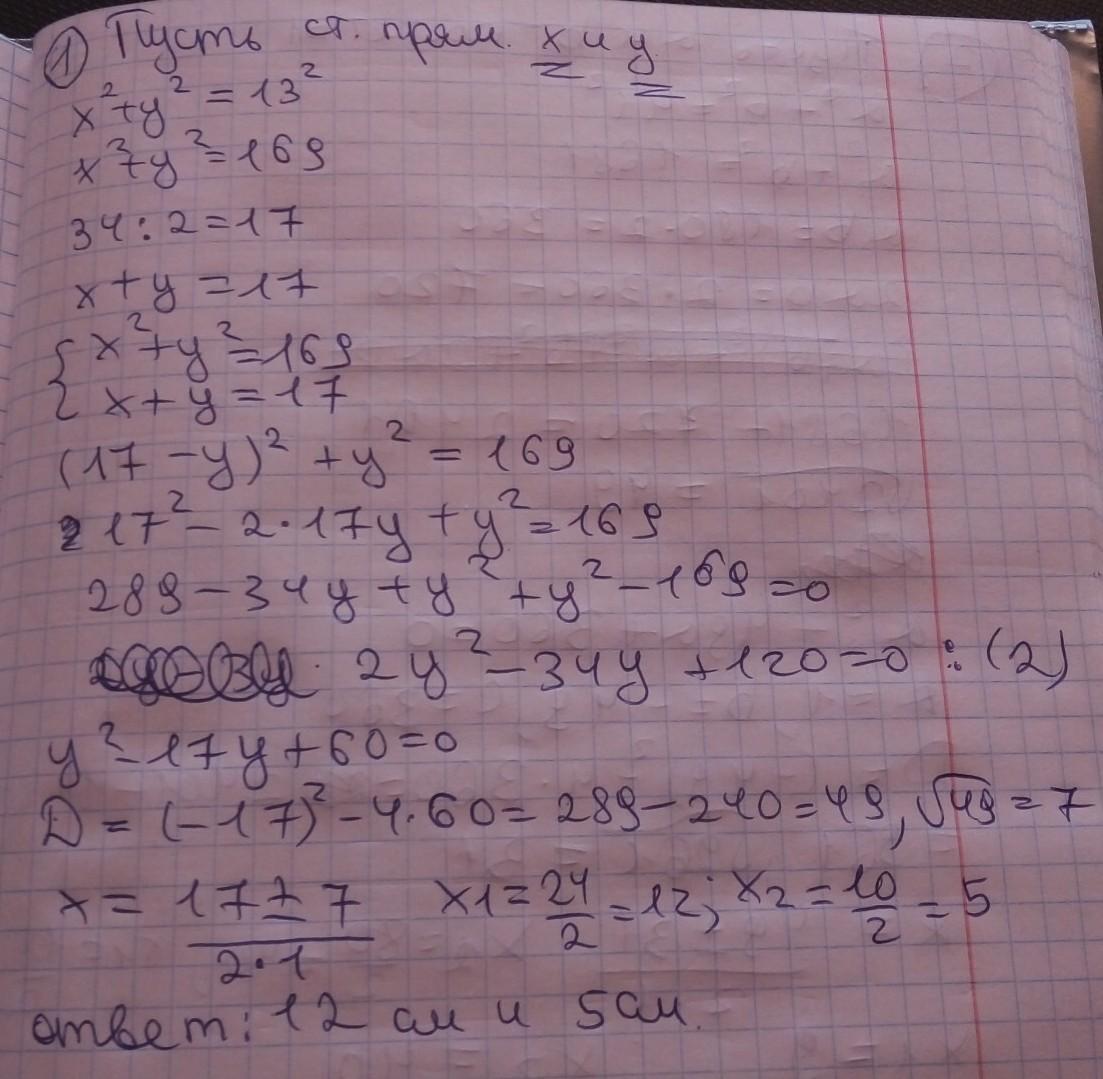 ① Пусть ст. прям. x и y
x² + y² = 13²
x² + y² = 169
34 : 2 = 17
x + y = 17
{ x² + y² = 169
{ x + y = 17
(17 - y)² + y² = 169
17² - 2·17y + y² = 169
289 - 34y + y² + y² - 169 = 0
2y² - 34y + 120 = 0 : (2)
y² - 17y + 60 = 0
D = (-17)² - 4·60 = 289 - 240 = 49, √49 = 7
x = (17 ± 7)/(2·1) x1 = 24/2 = 12; x2 = 10/2 = 5
ответ: 12 см и 5см.